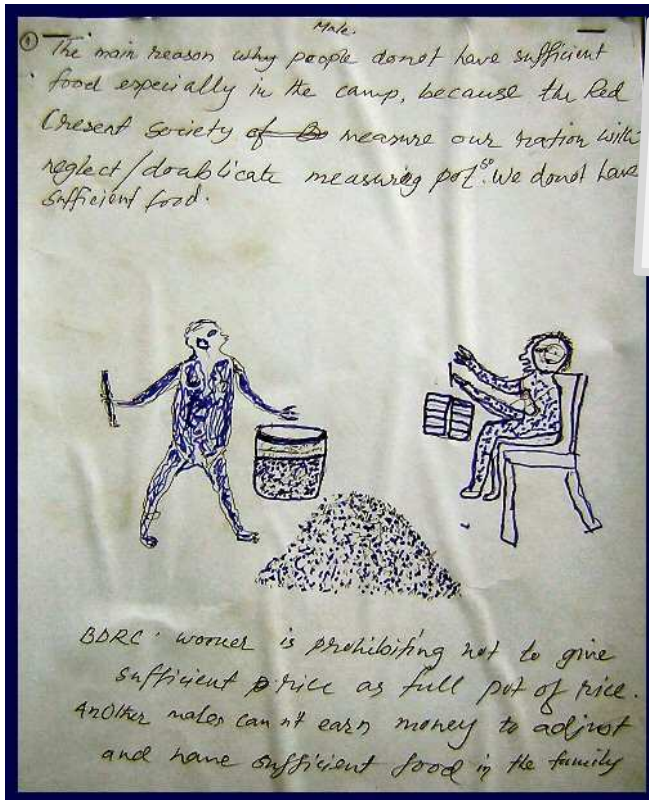 Male.
① The main reason why people donot have sufficient
food especially in the camp, because the Red
Cresent Society of measure our ration with
neglect/doablicate measuring pot so. We donot have
sufficient food.
BDRC. worner is prohibiting not to give
sufficient rice as full pot of rice.
Another males can nt earn money to adjust
and have sufficient food in the family